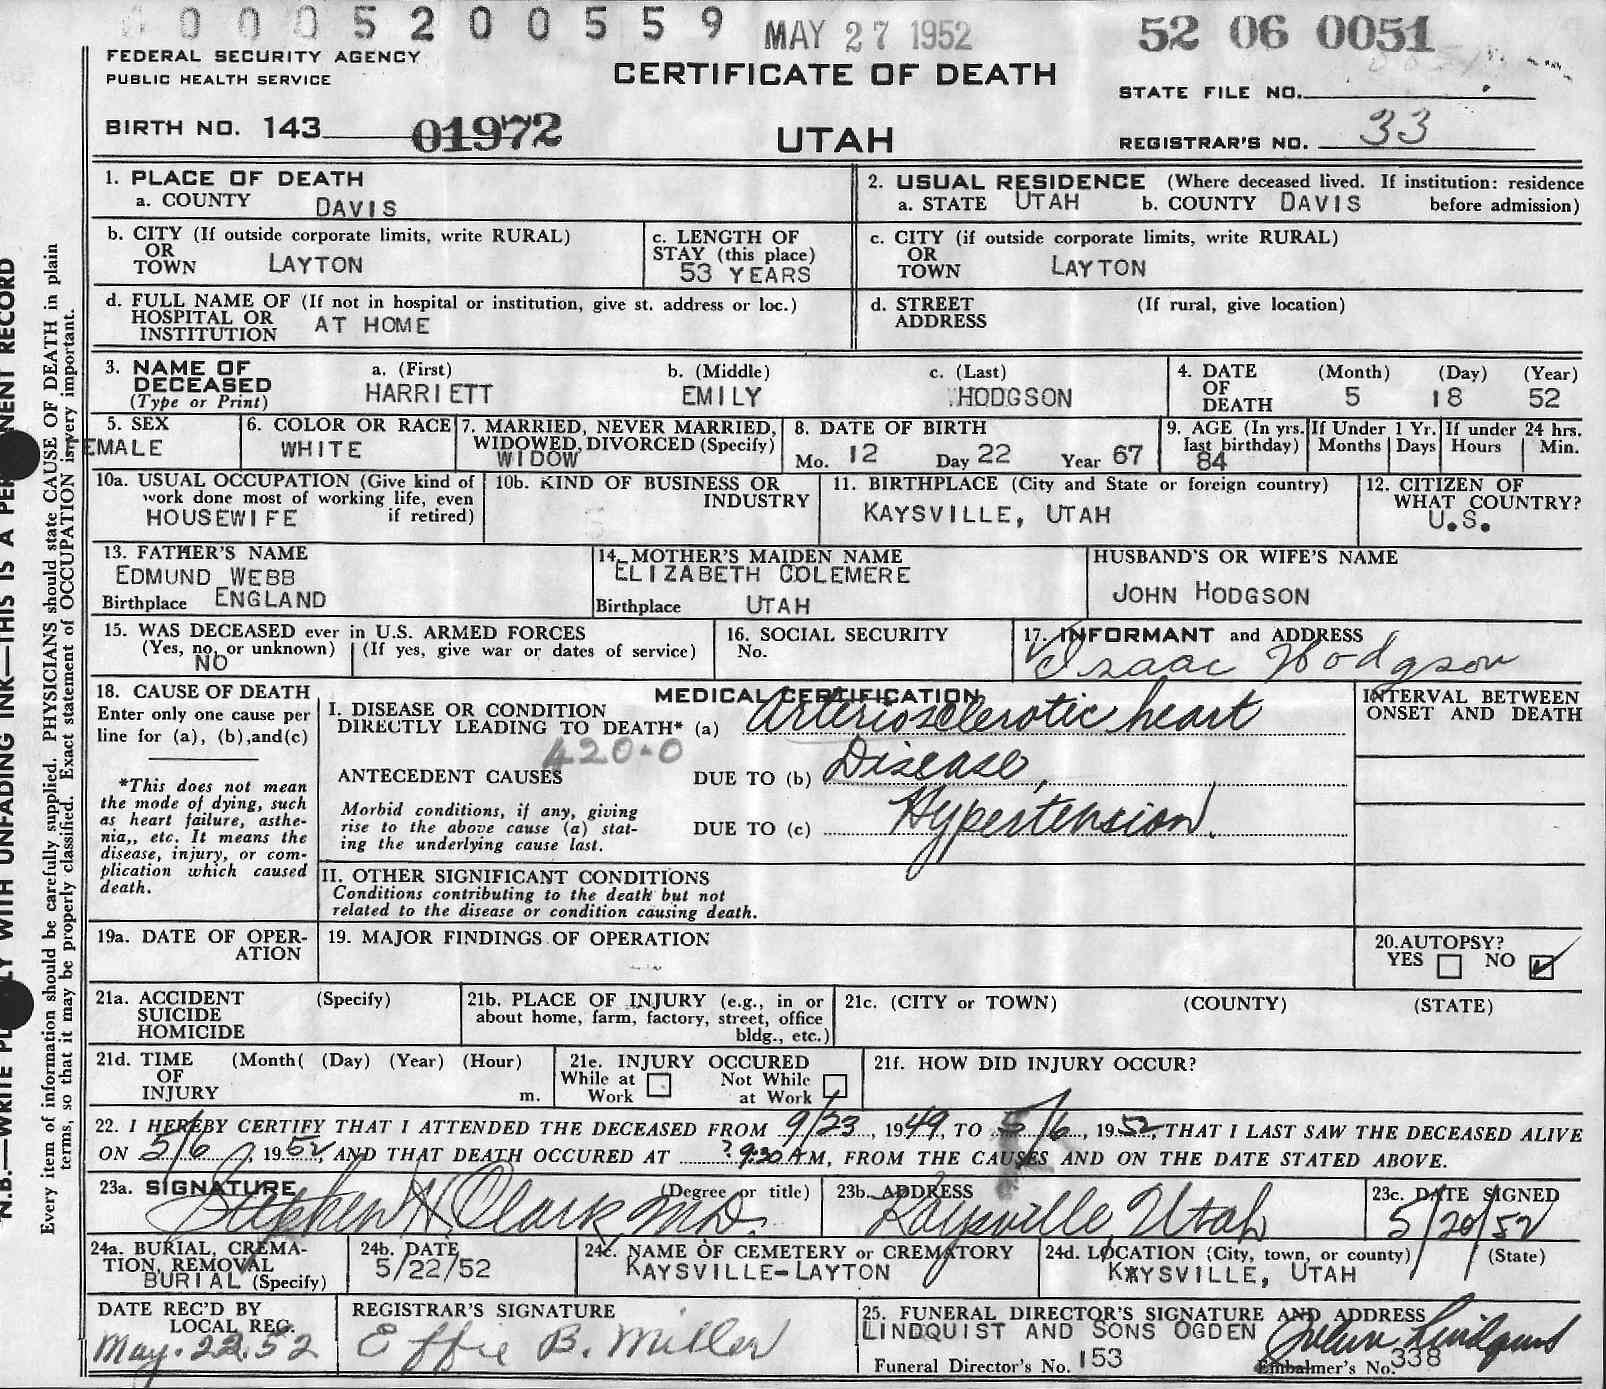 0 0 0 5 2 0 0 5 5 9 MAY 27 1952 52 06 0051
FEDERAL SECURITY AGENCY
PUBLIC HEALTH SERVICE
CERTIFICATE OF DEATH
STATE FILE NO.
BIRTH NO. 143 01972
UTAH
REGISTRAR'S NO. 33
1. PLACE OF DEATH
a. COUNTY DAVIS
2. USUAL RESIDENCE (Where deceased lived. If institution: residence
a. STATE UTAH b. COUNTY DAVIS before admission)
b. CITY (If outside corporate limits, write RURAL)
OR
TOWN LAYTON
c. LENGTH OF
STAY (this place)
53 YEARS
c. CITY (if outside corporate limits, write RURAL)
OR
TOWN LAYTON
d. FULL NAME OF (If not in hospital or institution, give st. address or loc.)
HOSPITAL OR
INSTITUTION AT HOME
d. STREET (If rural, give location)
ADDRESS
3. NAME OF
DECEASED
(Type or Print)
a. (First)
HARRIETT
b. (Middle)
EMILY
c. (Last)
HODGSON
4. DATE
OF
DEATH
(Month) (Day) (Year)
5 18 52
5. SEX
EMALE
6. COLOR OR RACE
WHITE
7. MARRIED, NEVER MARRIED,
WIDOWED, DIVORCED (Specify)
WIDOW
8. DATE OF BIRTH
Mo. 12 Day 22 Year 67
9. AGE (In yrs.
last birthday)
84
If Under 1 Yr.
Months Days
If under 24 hrs.
Hours Min.
10a. USUAL OCCUPATION (Give kind of
work done most of working life, even
HOUSEWIFE if retired)
10b. KIND OF BUSINESS OR
INDUSTRY
11. BIRTHPLACE (City and State or foreign country)
KAYSVILLE, UTAH
12. CITIZEN OF
WHAT COUNTRY?
U.S.
13. FATHER'S NAME
EDMUND WEBB
Birthplace ENGLAND
14. MOTHER'S MAIDEN NAME
ELIZABETH COLEMERE
Birthplace UTAH
HUSBAND'S OR WIFE'S NAME
JOHN HODGSON
15. WAS DECEASED ever in U.S. ARMED FORCES
(Yes, no, or unknown) (If yes, give war or dates of service)
NO
16. SOCIAL SECURITY
No.
17. INFORMANT and ADDRESS
Isaac Hodgson
18. CAUSE OF DEATH
Enter only one cause per
line for (a), (b), and(c)
*This does not mean
the mode of dying, such
as heart failure, asthe-
nia,, etc. It means the
disease, injury, or com-
plication which caused
death.
MEDICAL CERTIFICATION
I. DISEASE OR CONDITION
DIRECTLY LEADING TO DEATH* (a) Arteriosclerotic heart
420-0
ANTECEDENT CAUSES DUE TO (b) Disease,
Morbid conditions, if any, giving
rise to the above cause (a) stat-
ing the underlying cause last.
DUE TO (c) Hypertension.
INTERVAL BETWEEN
ONSET AND DEATH
II. OTHER SIGNIFICANT CONDITIONS
Conditions contributing to the death but not
related to the disease or condition causing death.
19a. DATE OF OPER-
ATION
19. MAJOR FINDINGS OF OPERATION
20. AUTOPSY?
YES NO
21a. ACCIDENT (Specify)
SUICIDE
HOMICIDE
21b. PLACE OF INJURY (e.g., in or
about home, farm, factory, street, office
bldg., etc.)
21c. (CITY or TOWN) (COUNTY) (STATE)
21d. TIME (Month( (Day) (Year) (Hour)
OF
INJURY m.
21e. INJURY OCCURED
While at Not While
Work at Work
21f. HOW DID INJURY OCCUR?
22. I HEREBY CERTIFY THAT I ATTENDED THE DECEASED FROM 9/23, 1949, TO 5/6, 1952, THAT I LAST SAW THE DECEASED ALIVE
ON 5/6, 1952, AND THAT DEATH OCCURED AT ? 9:30 A M, FROM THE CAUSES AND ON THE DATE STATED ABOVE.
23a. SIGNATURE (Degree or title)
Stephen H Clark, M.D.
23b. ADDRESS
Kaysville Utah
23c. DATE SIGNED
5/20/52
24a. BURIAL, CREMA-
TION, REMOVAL
BURIAL (Specify)
24b. DATE
5/22/52
24c. NAME OF CEMETERY or CREMATORY
KAYSVILLE-LAYTON
24d. LOCATION (City, town, or county) (State)
KAYSVILLE, UTAH
DATE REC'D BY
LOCAL REG.
May. 22. 52
REGISTRAR'S SIGNATURE
Effie B. Miller
25. FUNERAL DIRECTOR'S SIGNATURE AND ADDRESS
LINDQUIST AND SONS OGDEN Lindquist
Funeral Director's No. 153 Embalmer's No. 338
Every item of information should be carefully supplied. PHYSICIANS should state CAUSE OF DEATH in plain
terms, so that it may be properly classified. Exact statement of OCCUPATION is very important.